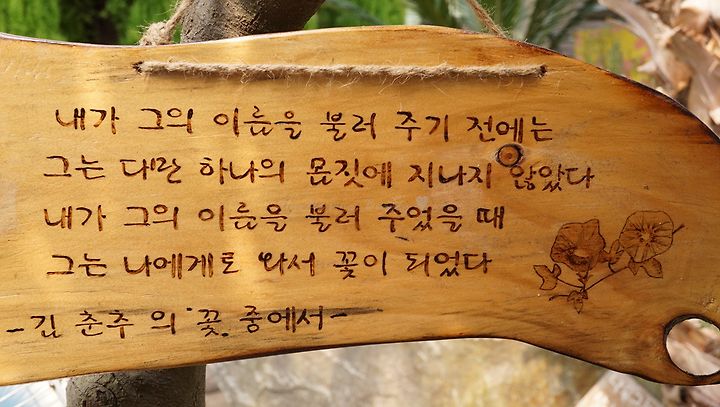 내가 그의 이름을 불러 주기 전에는
그는 다만 하나의 몸짓에 지나지 않았다
내가 그의 이름을 불러 주었을 때
그는 나에게로 와서 꽃이 되었다
-김 춘추 의 '꽃' 중에서-